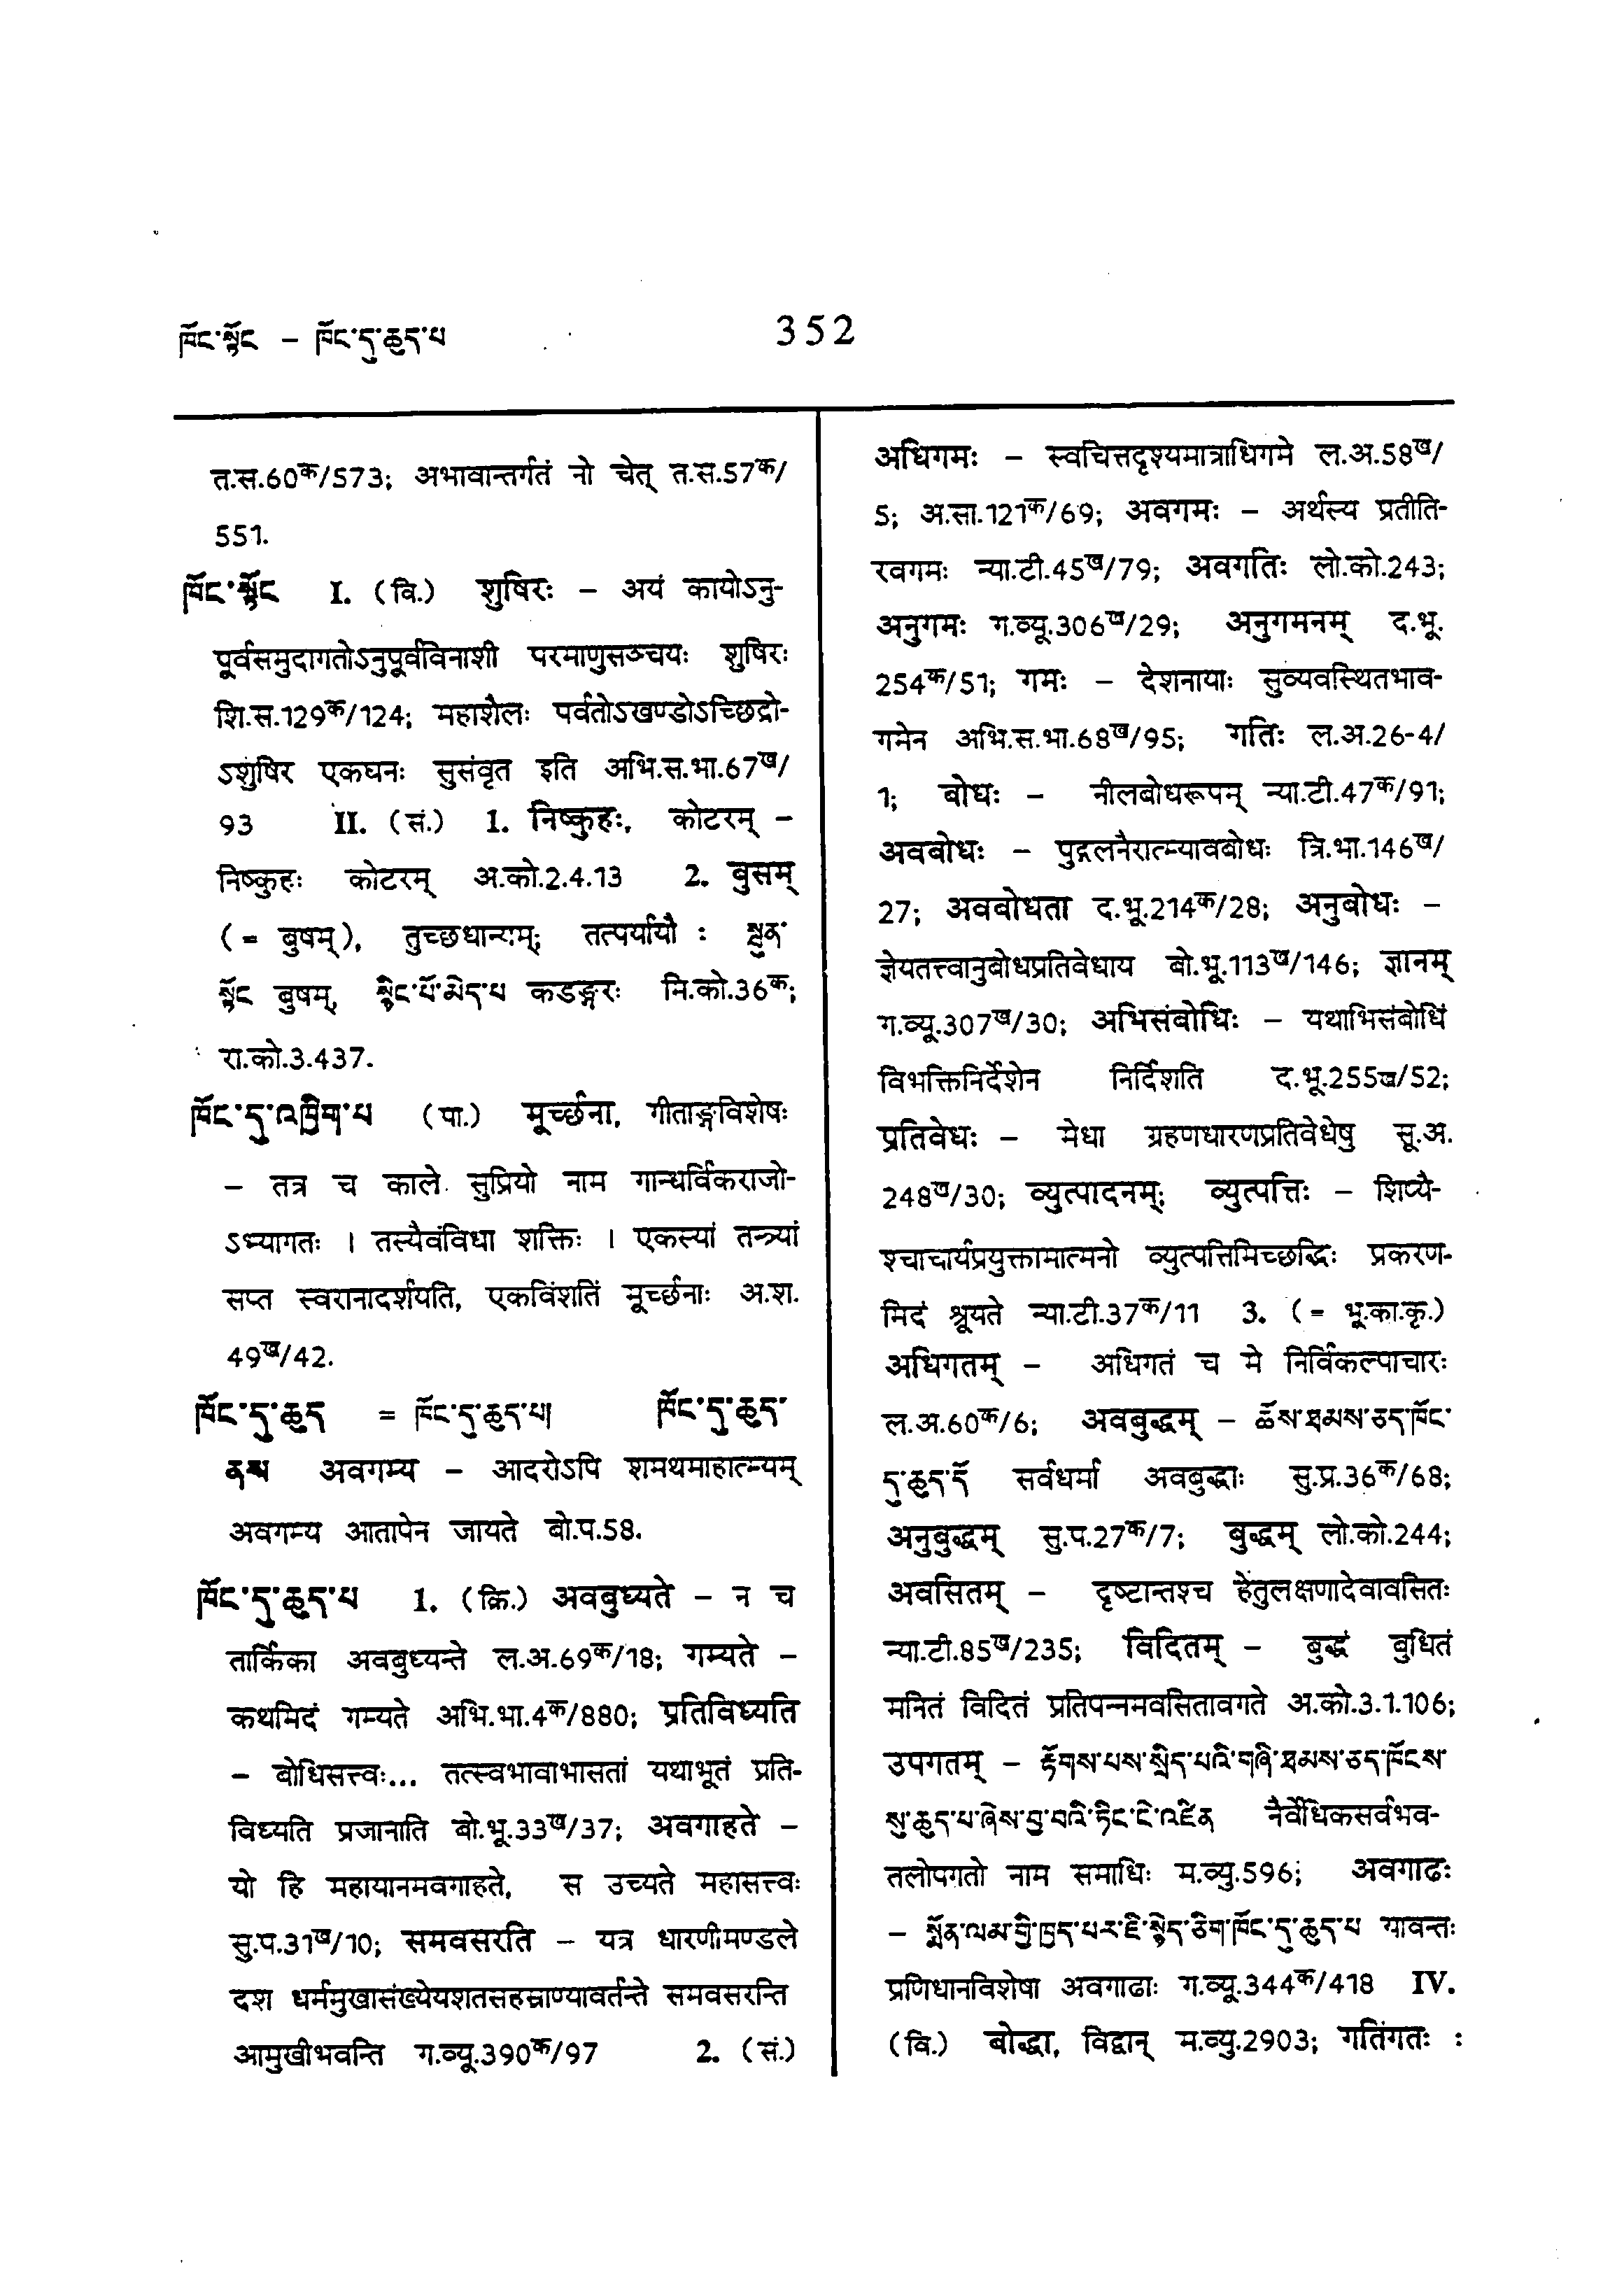 ཁོང་སྟོང – ཁོང་དུ་ཆུད་པ
352
त.स.60क/573; अभावान्तर्गतं नो चेत् त.स.57क/
551.
ཁོང་སྟོང I. (वि.) शुषिरः – अयं कायोऽनु-
पूर्वसमुदागतोऽनुपूर्वविनाशी परमाणुसञ्चयः शुषिरः
शि.स.129क/124; महाशैलः पर्वतोऽखण्डोऽच्छिद्रो-
ऽशुषिर एकघनः सुसंवृत इति अभि.स.भा.67ख/
93 II. (सं.) 1. निष्कुहः, कोटरम् –
निष्कुहः कोटरम् अ.को.2.4.13 2. बुसम्
(= बुषम्), तुच्छधान्यम्; तत्पर्यायौ : སྦུན་
སྟོང बुषम्, སྙིང་པོ་མེད་པ कडङ्गरः मि.को.36क;
रा.को.3.437.
ཁོང་དུ་འཁྲིག་པ (पा.) मूर्च्छना, गीताङ्गविशेषः
– तत्र च काले सुप्रियो नाम गान्धर्विकराजो-
ऽभ्यागतः । तस्यैवंविधा शक्तिः । एकस्यां तन्त्र्यां
सप्त स्वरानादर्शयति, एकविंशतिं मूर्च्छनाः अ.श.
49ख/42.
ཁོང་དུ་ཆུད = ཁོང་དུ་ཆུད་པ། ཁོང་དུ་ཆུད་
ནས अवगम्य – आदरोऽपि शमथमाहात्म्यम्
अवगम्य आतापेन जायते बो.प.58.
ཁོང་དུ་ཆུད་པ 1. (क्रि.) अवबुध्यते – न च
तार्किका अवबुध्यन्ते ल.अ.69क/18; गम्यते –
कथमिदं गम्यते अभि.भा.4क/880; प्रतिविध्यति
– बोधिसत्त्वः... तत्स्वभावाभासतां यथाभूतं प्रति-
विध्यति प्रजानाति बो.भू.33ख/37; अवगाहते –
यो हि महायानमवगाहते, स उच्यते महासत्त्वः
सु.प.31ख/10; समवसरति – यत्र धारणीमण्डले
दश धर्ममुखासंख्येयशतसहस्राण्यावर्तन्ते समवसरन्ति
आमुखीभवन्ति ग.व्यू.390क/97 2. (सं.)
अधिगमः – स्वचित्तदृश्यमात्राधिगमे ल.अ.58ख/
5; अ.सा.121क/69; अवगमः – अर्थस्य प्रतीति-
रवगमः न्या.टी.45ख/79; अवगतिः लो.को.243;
अनुगमः ग.व्यू.306ख/29; अनुगमनम् द.भू.
254क/51; गमः – देशनायाः सुव्यवस्थितभाव-
गमेन अभि.स.भा.68ख/95; गतिः ल.अ.26-4/
1; बोधः – नीलबोधरूपम् न्या.टी.47क/91;
अवबोधः – पुद्गलनैरात्म्यावबोधः त्रि.भा.146ख/
27; अवबोधता द.भू.214क/28; अनुबोधः –
ज्ञेयतत्त्वानुबोधप्रतिवेधाय बो.भू.113ख/146; ज्ञानम्
ग.व्यू.307ख/30; अभिसंबोधिः – यथाभिसंबोधिं
विभक्तिनिर्देशेन निर्दिशति द.भू.255ख/52;
प्रतिवेधः – मेधा ग्रहणधारणप्रतिवेधेषु सू.अ.
248ख/30; व्युत्पादनम्; व्युत्पत्तिः – शिष्यै-
श्चाचार्यप्रयुक्तामात्मनो व्युत्पत्तिमिच्छद्भिः प्रकरण-
मिदं श्रूयते न्या.टी.37क/11 3. (= भू.का.कृ.)
अधिगतम् – अधिगतं च मे निर्विकल्पाचारः
ल.अ.60क/6; अवबुद्धम् – ཆོས་ཐམས་ཅད་ཁོང་
དུ་ཆུད་དོ सर्वधर्मा अवबुद्धाः सु.प्र.36क/68;
अनुबुद्धम् सु.प.27क/7; बुद्धम् लो.को.244;
अवसितम् – दृष्टान्तश्च हेतुलक्षणादेवावसितः
न्या.टी.85ख/235; विदितम् – बुद्धं बुधितं
मनितं विदितं प्रतिपन्नमवसितावगते अ.को.3.1.106;
उपगतम् – རྟོགས་པས་སྲིད་པའི་གཞི་ཐམས་ཅད་ཁོངས་
སུ་ཆུད་པ་ཞེས་བྱ་བའི་ཏིང་ངེ་འཛིན नैर्वेधिकसर्वभव-
तलोपगतो नाम समाधिः म.व्यु.596; अवगाढः
– སྨོན་ལམ་གྱི་ཁྱད་པར་ཇི་སྙེད་ཅིག་ཁོང་དུ་ཆུད་པ यावन्तः
प्रणिधानविशेषा अवगाढाः ग.व्यू.344क/418 IV.
(वि.) बोद्धा, विद्वान् म.व्यु.2903; गतिंगतः :